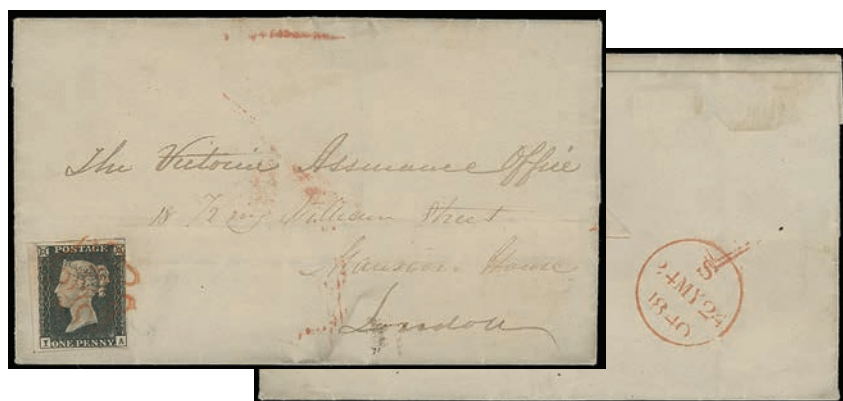 The Victoria Assurance Office
18 King William Street
Mansion House
London
POSTAGE
I ONE PENNY A
S
24 MY 24
1840